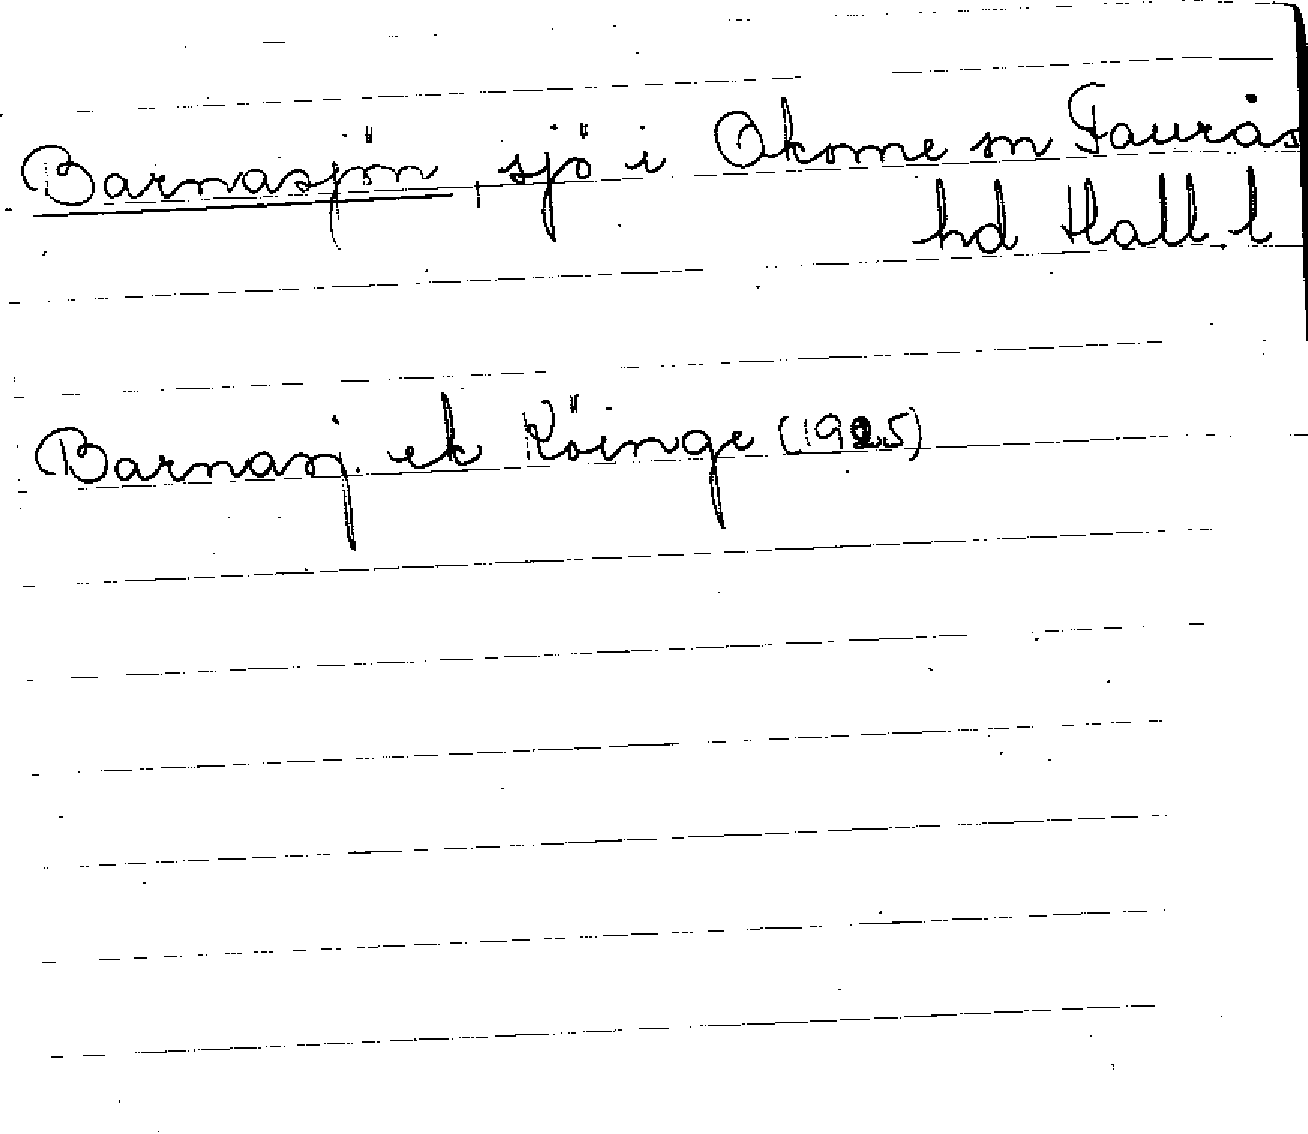 Barnasjön, sjö i Okome sn Faurås
hd Hall. l
Barnasj. ek Köinge (1925)